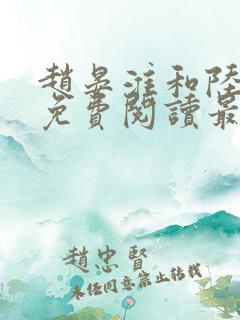 趙晏淮和陸
免費閱讀最
趙忠賢
未經同意禁止轉載